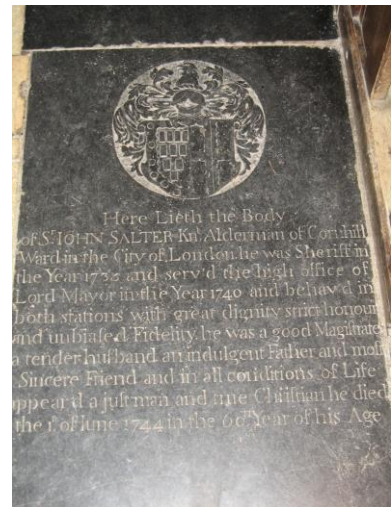 Here Lieth the Body
of Sr. IOHN SALTER Knt. Alderman of Cornhill
Ward in the City of London he was Sheriff in
the Year 1735 and serv'd the high office of
Lord Mayor in the Year 1740 and behav'd in
both stations with great dignity strict honour
and unbiased Fidelity, he was a good Magistrate
a tender husband an indulgent Father and most
Sincere Friend and in all conditions of Life
appear'd a just man and true Christian he died
the 1st. of Iune 1744 in the Year of his Age